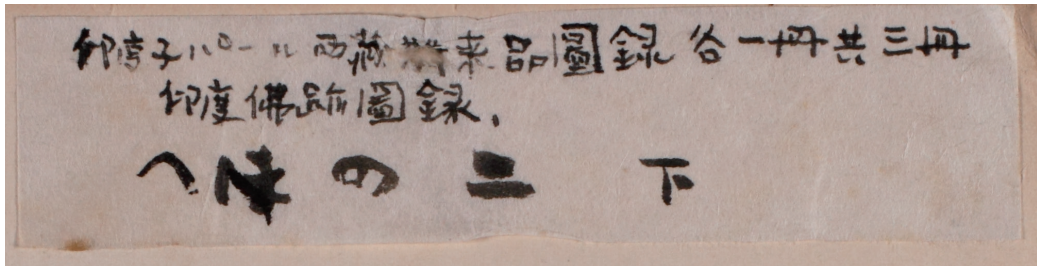 印度ネパール西藏将来品圖録各一冊共三冊
印度佛跡圖録、
への二下